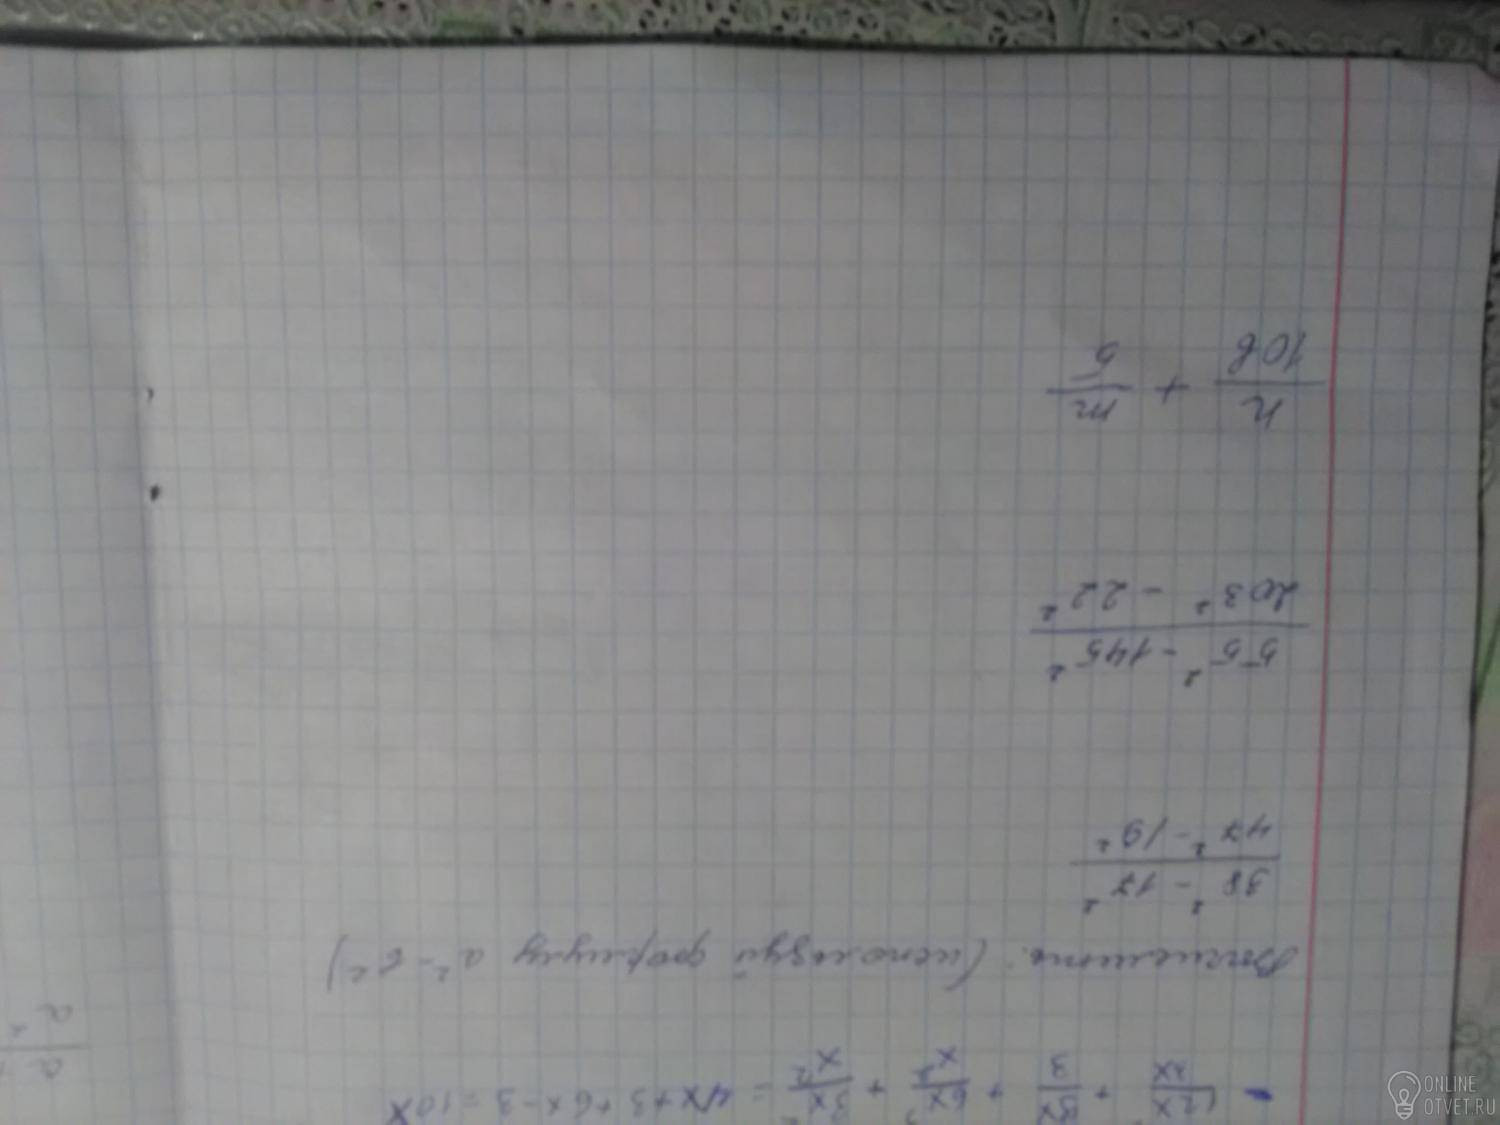 12x/3x + 3x/3 + 6x²/x + 3x²/x² = 4x+3+6x-3=10x
Вычислить. (используй формулу a²-b²)
38² - 17²
47² - 19²
55² - 145²
203² - 22²
n/10b + m/5
ONLINE
OTVET.RU